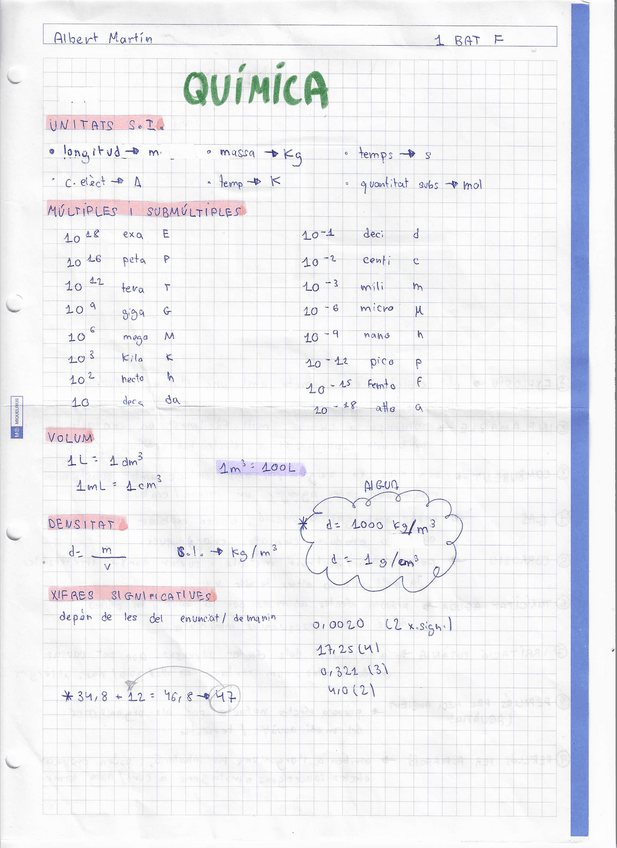 Albert Martín 1 BAT F
QUÍMICA
UNITATS S.I.
• longitud → m • massa → Kg • temps → s
• c. elèct → A • temp → K • quantitat subs → mol
MÚLTIPLES I SUBMÚLTIPLES
10^18 exa E 10^-1 deci d
10^16 peta P 10^-2 centi c
10^12 tera T 10^-3 mili m
10^9 giga G 10^-6 micro μ
10^6 mega M 10^-9 nano n
10^3 kilo K 10^-12 pico p
10^2 hecto h 10^-15 femto f
10 deca da 10^-18 atto a
VOLUM
1L = 1dm³ 1m³ = 100L
1mL = 1cm³
AIGUA
DENSITAT * d = 1000 kg/m³
d = m/v S.I. → kg/m³ d = 1 g/cm³
XIFRES SIGNIFICATIVES
depèn de les del enunciat/demanin 0,0020 (2 x.sign.)
17,25 (4)
0,321 (3)
4,0 (2)
* 34,8 + 12 = 46,8 → 47